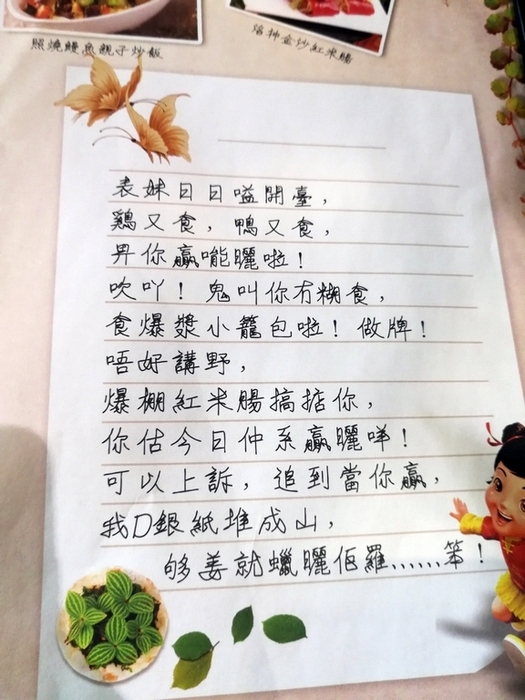 照燒鰻魚親子炒飯
洛神金炒紅米腸
表妹日日嗌開臺，
鷄又食，鴨又食，
畀你贏啱曬啦！
吹吖！鬼叫你冇糊食，
食爆漿小籠包啦！做牌！
唔好講野，
爆棚紅米腸搞掂你，
你估今日仲系贏曬咩！
可以上訴，追到當你贏，
我D銀紙堆成山，
夠姜就蠟曬佢羅......笨！